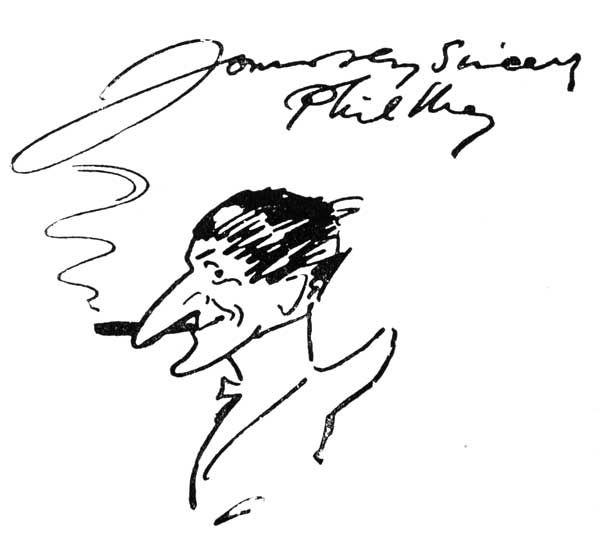 Yours Very Sincerely
Phil May